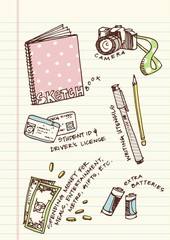 CAMERA
SKETCH
BOOK
STUDENT ID &
DRIVER'S LICENSE
SPENDING MONEY FOR
MEALS, ENTERTAINMENT,
METRO, GIFTS, ETC.
EXTRA
BATTERIES